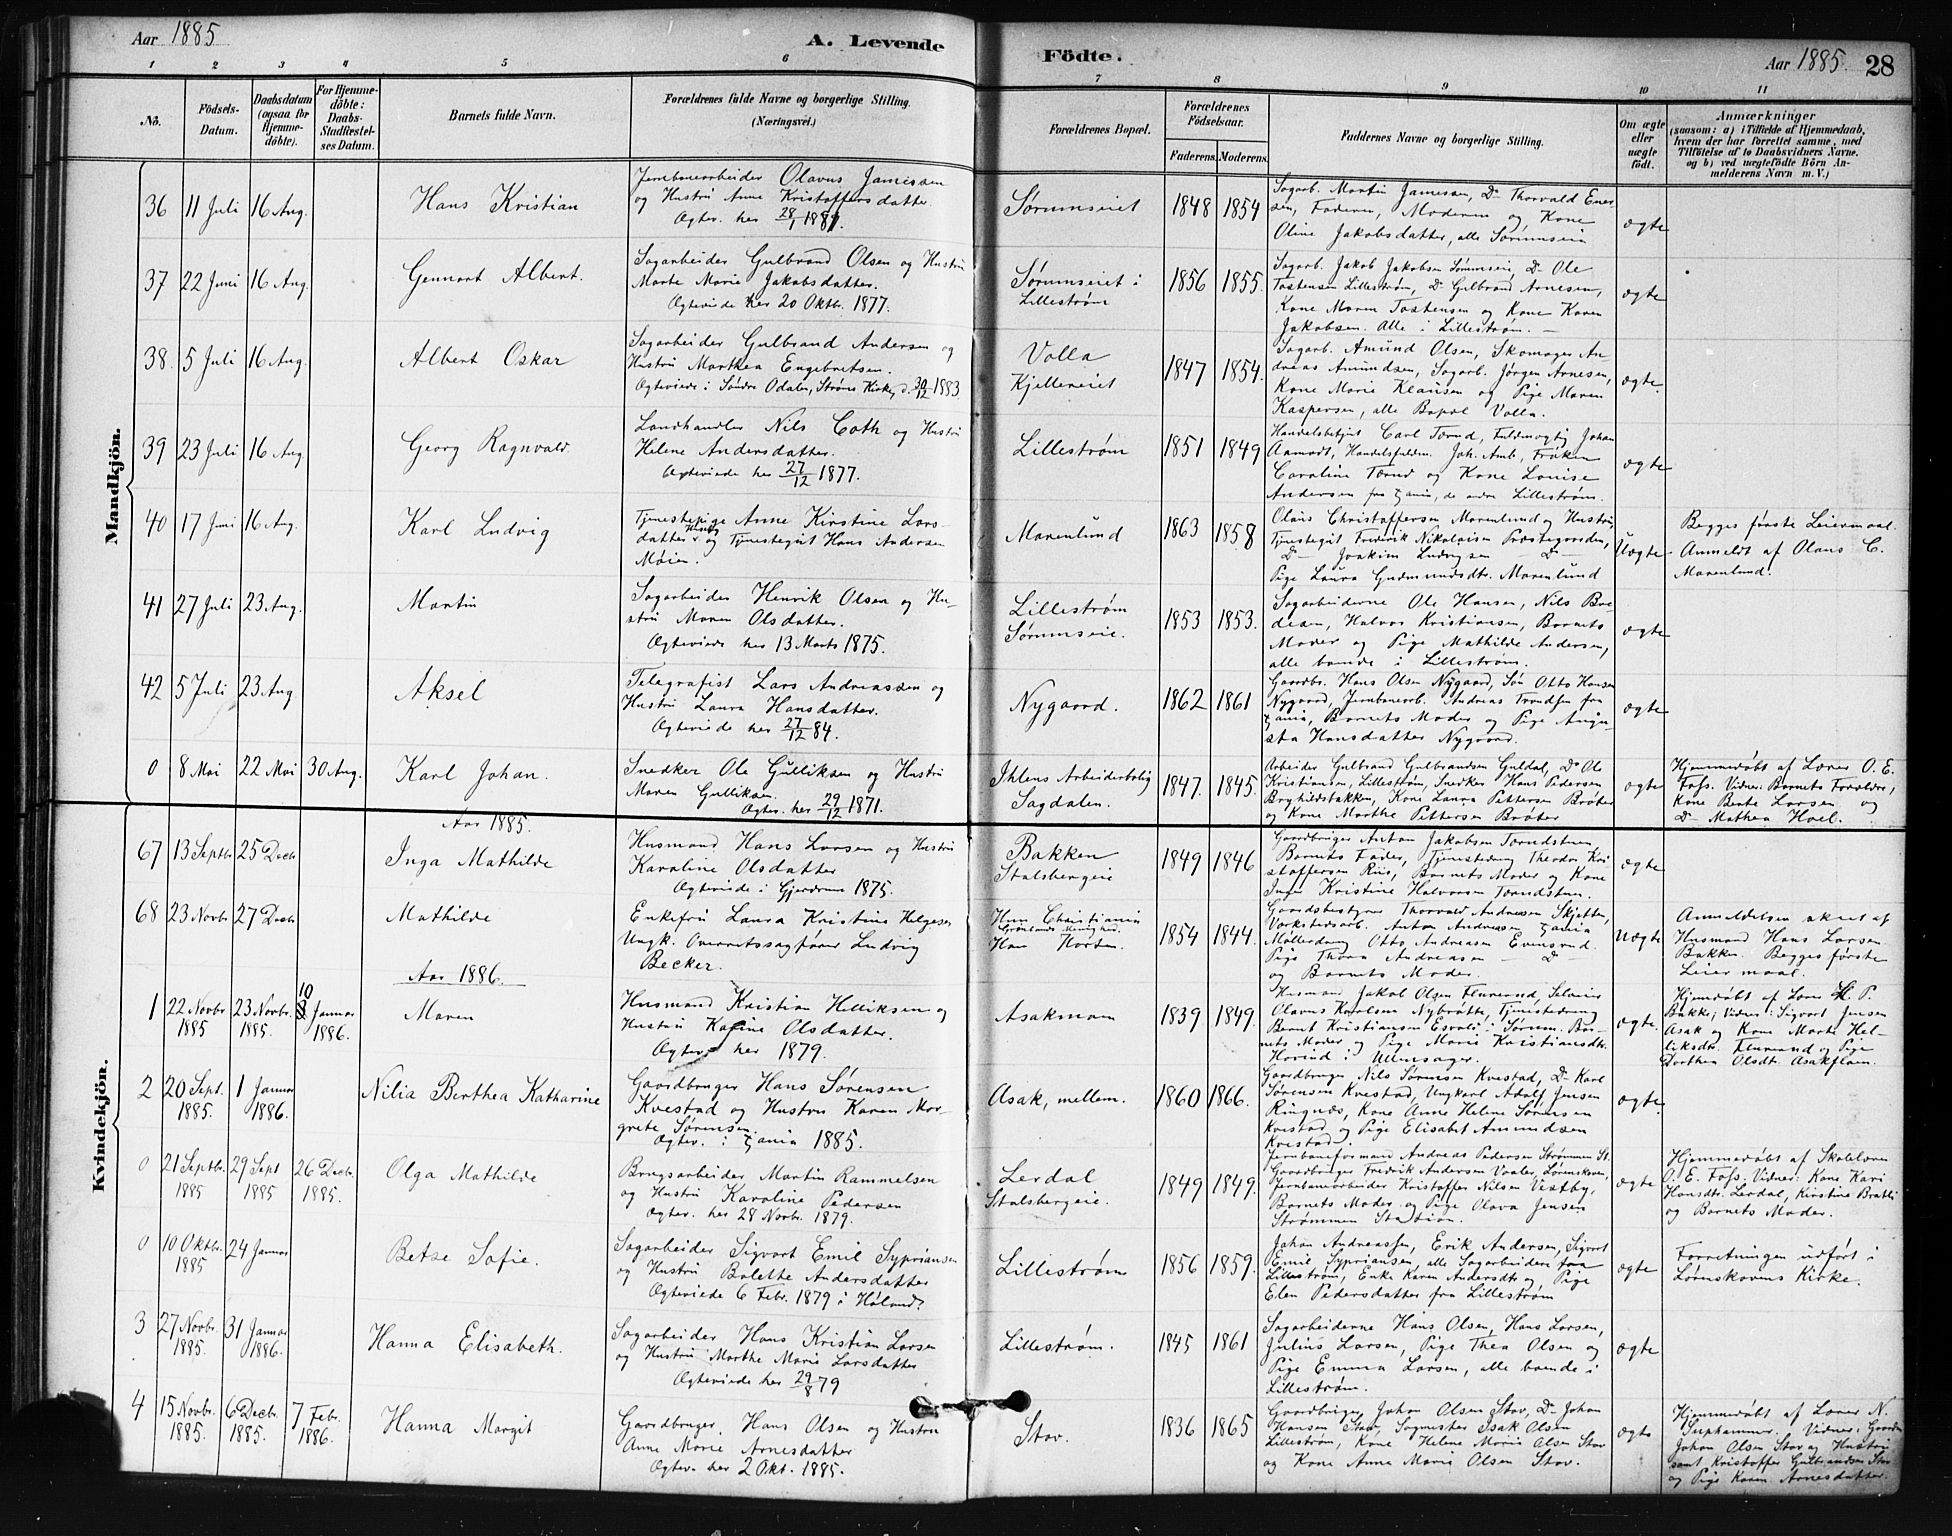 Aar 1885
A. Levende
Födte.
Aar 1885.
28
1 2 3 4 5 6 7 8 9 10 11
No.
Födsels-
Datum.
Daabsdatum
(ogsaa for
Hjemme-
döbte).
For Hjemme-
döbte:
Daabs-
Stadfæstel-
ses Datum.
Barnets fulde Navn.
Forældrenes fulde Navne og borgerlige Stilling.
(Næringsvei.)
Forældrenes Bopæl.
Forældrenes
Födselsaar.
Faderens. Moderens.
Faddernes Navne og borgerlige Stilling.
Om ægte
eller
uægte
födt.
Anmærkninger
(saasom: a) i Tilfælde af Hjemmedaab,
hvem der har forrettet samme, med
Tilföielse af to Daabsvidners Navne.
og b) ved uægtefödte Börn An-
melderens Navn m. V.)
Mandkjön.
36 11 Juli 16 Aug.
Hans Kristian
Jernbanearbeider Olavus Jamessen
og Hustru Anne Kristoffersdatter
Ægtev. her 28/1 1881.
Sørumseiet
1848 1854
Sagarb. Martin Jamessen, Do Thorvald Ener-
sen, Faderen, Moderen og Kone
Oline Jakobsdatter, alle Sørumseie
ægte
37 22 Juni 16 Aug.
Gennart Albert.
Sagarbeider Gulbrand Olsen og Hustru
Marte Marie Jakobsdatter.
Ægteviede her 20 Oktbr. 1877.
Sørumseiet i
Lillestrøm
1856 1855.
Sagarb. Jakob Jakobsen Sørumseie, Do Ole
Tostensen Lillestrøm, Do Gulbrand Arnesen,
Kone Maren Tostensen og Kone Karen
Jakobsen. Alle i Lillestrøm. —
ægte
38. 5 Juli 16 Aug.
Albert Oskar
Sagarbeider Gulbrand Andersen og
Hustru Marthea Engebretsen.
Ægteviede i Søndre Odalen, Strøms Kirke, d. 30/12 1883.
Volla
Kjelleneiet
1847 1854.
Sagarb. Amund Olsen, Skomager An-
dreas Amundsen, Sagarb. Jørgen Arnesen,
Kone Marie Klausen og Pige Maren
Kaspersen, alle Bopæl Volla.
ægte.
39 23 Juli 16 Aug
Georg Ragnvald.
Landhandler Nils Coth og Hustru
Helene Andersdatter.
Ægteviede her 27/12 1877.
Lillestrøm
1851 1849
Handelsbetjent Carl Tærud, Fuldmægtig Johan
Aamodt, Handelsfuldm. Joh. Amb, Frøken
Caroline Tærud og Kone Louise
Andersen fra Xania, de andre Lillestrøm.
ægte
40 17 Juni 16 Aug.
Karl Ludvig
Tjenestepige Anne Kirstine Lars-
datter og Tjenestegut Hans Andersen
Maier.
Marenlund
1863 1858
Olaus Christoffersen Marenlund og Hustru,
Tjenestegut Frederik Nikolaisen Præstegaarden,
Do Joakim Ludvigsen — Do —
Pige Laura Gudmundsdtr. Marenlund
Uægte
Begges første Leiermaal.
Anmeldt af Olaus C.
Marenlund.
41 27 Juli 23 Aug.
Martin
Sagarbeider Henrik Olsen og Hu-
stru Maren Olsdatter.
Ægteviede her 13 Marts 1875.
Lillestrøm
Sørumseie.
1853 1853.
Sagarbeiderne Ole Hansen, Nils Bre-
desen, Halvor Kristiansen, Barnets
Moder og Pige Mathilde Andersen,
alle boende i Lillestrøm.
ægte
42 5 Juli 23 Aug.
Aksel
Telegrafist Lars Andreassen og
Hustru Laura Hansdatter.
Ægteviede her 27/12 84.
Nygaard.
1862 1861
Gaardbr. Hans Olsen Nygaard, Søn Otto Hansen
Nygaard, Jernbanearb. Andreas Trondsen fra
Xania, Barnets Moder og Pige Augu-
sta Hansdatter Nygaard.
ægte
0 8 Mai 22 Mai 30 Aug.
Karl Johan.
Snedker Ole Gulliksen og Hustru
Maren Gulliksen.
Ægtev. her 29/12 1871.
Ihlens Arbeiderbolig
Sagdalen.
1847. 1845.
Arbeider Gulbrand Gulbrandsen Guldal, Do Ole
Kristiansen, Lillestrøm, Snedker Hans Pedersen
Bryhildsbakken, Kone Laura Pettersen Bråter
og Kone Marthe Pettersen Bråter
ægte
Hjemmedøbt af Lærer O. E.
Foss. Vidner: Barnets Forældre,
Kone Berte Larsen og
Do Mathea Hoel.
Kvindekjön.
Aar 1885.
67 13 Septbr 25 Decbr
Inga Mathilde
Husmand Hans Larsen og Hustru
Karoline Olsdatter
Ægteviede i Gjerdrum 1875.
Bakken
Stalsbergeie
1849 1846
Gaardbruger Anton Jakobsen Tærudstuen
Barnets Fader, Tjenestedreng Theodor Kri-
stoffersen Riis, Barnets Moder og Kone
Inger Kristine Halvorsen Tærudstuen.
ægte
68 23 Novbr 27 Decbr
Mathilde
Enkefru Laura Kristine Helgesen
Ungk. Overretssagfører Ludvig
Becker.
Hun Christiania
Han Horten.
1854 1844.
Gaardsbestyrer Thorvald Andreasen Skjetten,
Værkstedsarb. Anton Andreasen Xania
Møllerdreng Otto Andreasen Evensrud.
Pige Thora Andreasen — Do —
og Barnets Moder.
Uægte
Anmeldelsen skeet af
Husmand Hans Larsen
Bakken. Begges første
Leiermaal.
Aar 1886.
1 22 Novbr 1885 23 Novbr. 1885. 10 Januar 1886.
Maren
Husmand Kristian Helliksen og
Hustru Karine Olsdatter.
Ægtev. her 1879.
Asakmoen
1839 1849.
Husmand Jakob Olsen Fluerund, Selveier
Olavus Karlsen Nybråtte, Tjenestedreng
Bernt Kristiansen Esvald i Sørum. Bar-
nets Moder og Pige Marie Kristiansdtr.
Hovind i Ullensager.
ægte.
Hjemdøbt af Lærer H. P.
Bakke; Vidner: Sigvart Jensen
Asak og Kone Marte Hel-
liksdtr. Fluerund og Pige
Dorthea Olsdtr. Asakflaen.
2 20 Sept. 1885. 1 Januar 1886.
Nilia Berthea Katharine
Gaardbruger Hans Sørensen
Kvestad og Hustru Karen Mar-
grete Sørensen.
Ægtev. i Xania 1885.
Asak, mellem.
1860 1866.
Gaardbruger Nils Sørensen Kvestad, Do Karl
Sørensen Kvestad, Ungkarl Adolf Jensen
Ringnæs, Kone Anne Helene Sørensen
Kvestad og Pige Elisabet Amundsen
Kvestad.
ægte
0 21 Septbr. 1885 29 Sept 1885 26 Decbr. 1885.
Olga Mathilde
Brugsarbeider Martin Rammelsen
og Hustru Karoline Pedersen
Ægtev. her 28 Novbr. 1879.
Lerdal
Stalsbergeie
1849 1849.
Jernbaneformand Andreas Pedersen Strømmen St.
Gaardbruger Fredrik Andersen Vaaler, Lørenskoven,
Jernbanearbeider Kristoffer Nilsen Vestby,
Barnets Moder og Pige Olava Jensen
Strømmen Station.
ægte
Hjemmedøbt af Skolelærer
O. E. Foss. Vidner: Kone Kari
Hansdtr. Lerdal, Kirstine Bratli
og Barnets Moder.
0 10 Oktbr. 1885 24 Januar
Betze Sofie.
Sagarbeider Sigvart Emil Sypriansen
og Hustru Bolette Andersdatter
Ægteviede 6 Febr. 1879 i Høland.
Lillestrøm
1856 1859.
Johan Andreassen, Erik Andersen, Sigvart
Emil Sypriansen, alle Sagarbeidere fra
Lillestrøm, Enke Karen Andersdtr og Pige
Elen Pedersdatter fra Lillestrøm
ægte
Forretningen udført i
Lørenskovens Kirke.
3 27 Novbr. 1885. 31 Januar 1886.
Hanna Elisabeth.
Sagarbeider Hans Kristian Larsen
og Hustru Marthe Marie Larsdatter
Ægteviede her 29/8 79
Lillestrøm.
1845 1861
Sagarbeiderne Hans Olsen, Hans Larsen,
Julius Larsen, Pige Thea Olsen og
Pige Emma Larsen, alle boende i
Lillestrøm.
ægte
4 15 Novbr. 1885. 6 Decbr. 1885. 7 Febr. 1886.
Hanna Margit
Gaardbruger Hans Olsen og Hustru
Anne Marie Arnesdatter
Ægtev. her 2 Okt. 1885.
Stav.
1836 1865
Gaardbruger Johan Olsen Stav, Do Johan
Hansen Stav, Sagmester Isak Olsen
Lillestrøm, Kone Helene Marie Olsen Stav
og Kone Anna Marie Olsen Stav.
ægte
Hjemmedøbt af Lærer N.
Suphammer. Vidner: Gaardbr.
Johan Olsen Stav og Hustru
samt Kristoffer Gulbrandsen Stav
og Pige Karen Arnesdatter.